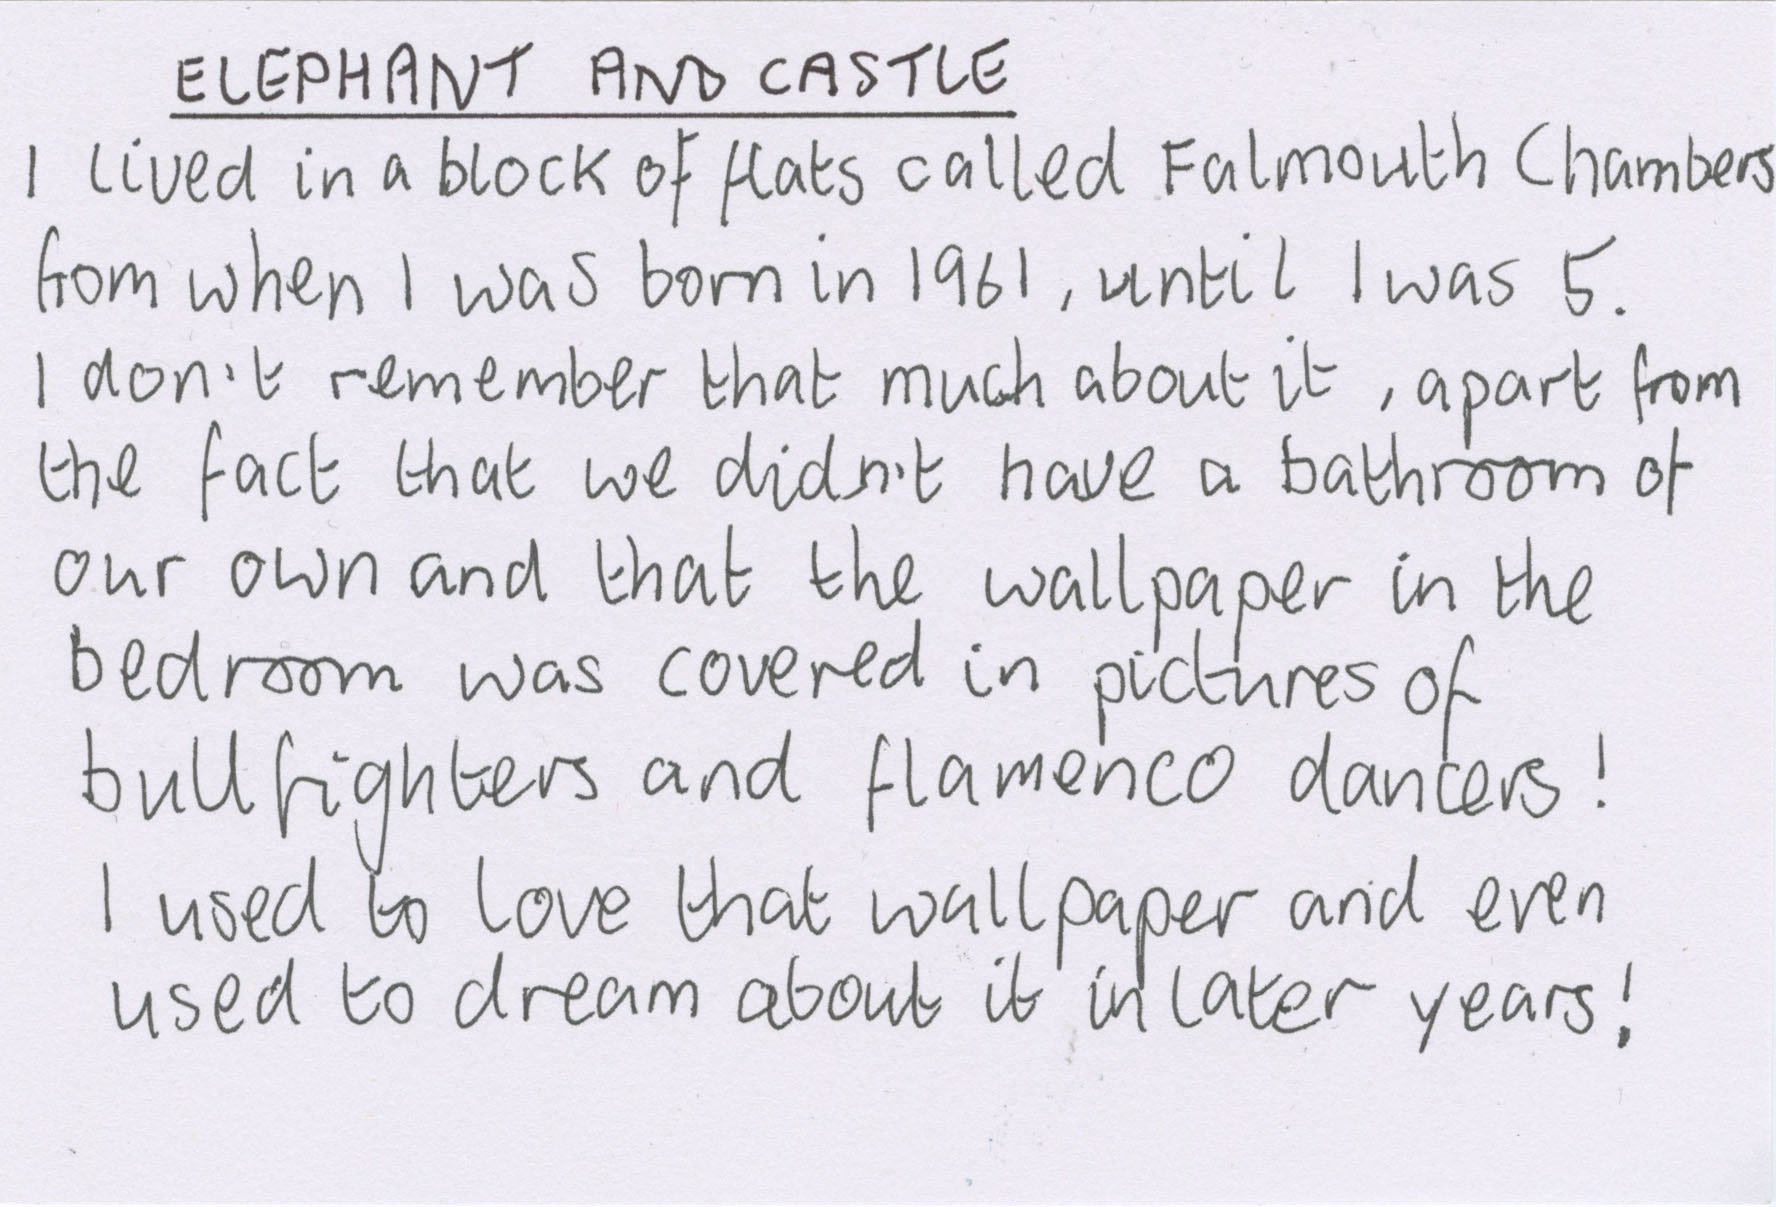 ELEPHANT AND CASTLE
I lived in a block of flats called Falmouth Chambers
from when I was born in 1961, until I was 5.
I don't remember that much about it, apart from
the fact that we didn't have a bathroom of
our own and that the wallpaper in the
bedroom was covered in pictures of
bullfighters and flamenco dancers!
I used to love that wallpaper and even
used to dream about it in later years!